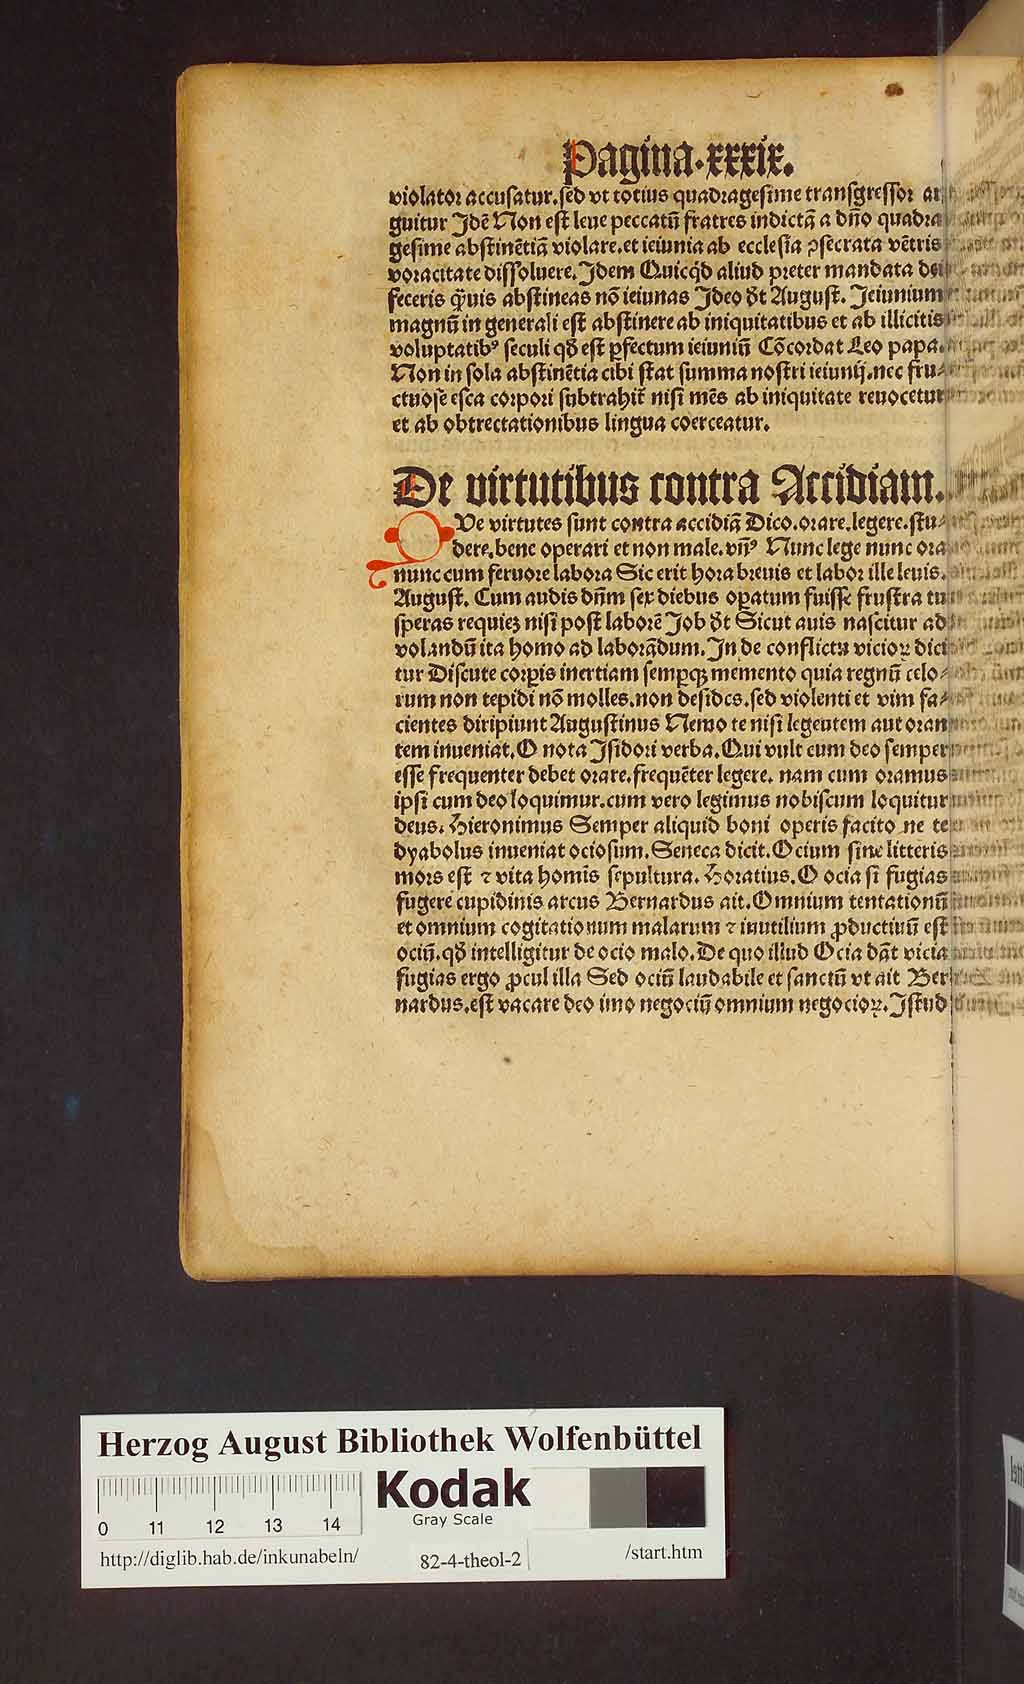 Pagina.xxxix.
violator accusatur.sed vt totius quadragesime transgressor ar
guitur Jdē Non est leue peccatū fratres indictā a dño quadra
gesime abstinētiā violare.et ieiunia ab ecclesia ↄsecrata vētris
voracitate dissoluere.Jdem Quicqͥd aliud preter mandata dei
feceris qͣuis abstineas nō ieiunas Jdeo dt August. Jeiunium
magnū in generali est abstinere ab iniquitatibus et ab illicitis
voluptatibꝰ seculi qđ est ꝑfectum ieiuniū Cōcordat Leo papa.
Non in sola abstinētia cibi stat summa nostri ieiunij.nec fru⸗
ctuose esca corpori subtrahit̄ nisi mēs ab iniquitate reuocetur
et ab obtrectationibus lingua coerceatur.
De virtutibus contra Accidiam.
QVe virtutes sunt contra accidiā Dico.orare.legere.stu⸗
dere.bene operari et non male.vn̄ꝰ Nunc lege nunc ora
nunc cum feruore labora Sic erit hora breuis et labor ille leuis.
August. Cum audis dn̄m sex diebus oꝑatum fuisse frustra tu
speras requieꝫ nisi post laborē Job dt Sicut auis nascitur ad
volandū ita homo ad laborādum.Jn de conflictu vicioꝝ dici
tur Discute corꝑis inertiam semꝑqꝫ memento quia regnū celo⸗
rum non tepidi nō molles.non desides.sed violenti et vim fa⸗
cientes diripiunt Augustinus Nemo te nisi legentem aut oran
tem inueniat.O nota Jsidori verba.Qui vult cum deo semper
esse frequenter debet orare.frequēter legere. nam cum oramus
ipsi cum deo loquimur.cum vero legimus nobiscum loquitur
deus. Hieronimus Semper aliquid boni operis facito ne te
dyabolus inueniat ociosum.Seneca dicit.Ocium sine litteris
mors est ⁊ vita homīs sepultura. Horatius.O ocia si fugias
fugere cupidinis arcus Bernardus ait.Omnium tentationū
et omnium cogitationum malarum ⁊ inutilium ꝓductiuū est
ociū.qđ intelligitur de ocio malo.De quo illud Ocia dāt vicia
fugias ergo ꝓcul illa Sed ociū laudabile et sanctū vt ait Ber
nardus.est vacare deo imo negociū omnium negocioꝝ.Jstud
Herzog August Bibliothek Wolfenbüttel
Kodak
Gray Scale
0 11 12 13 14
http://diglib.hab.de/inkunabeln/
82-4-theol-2
/start.htm